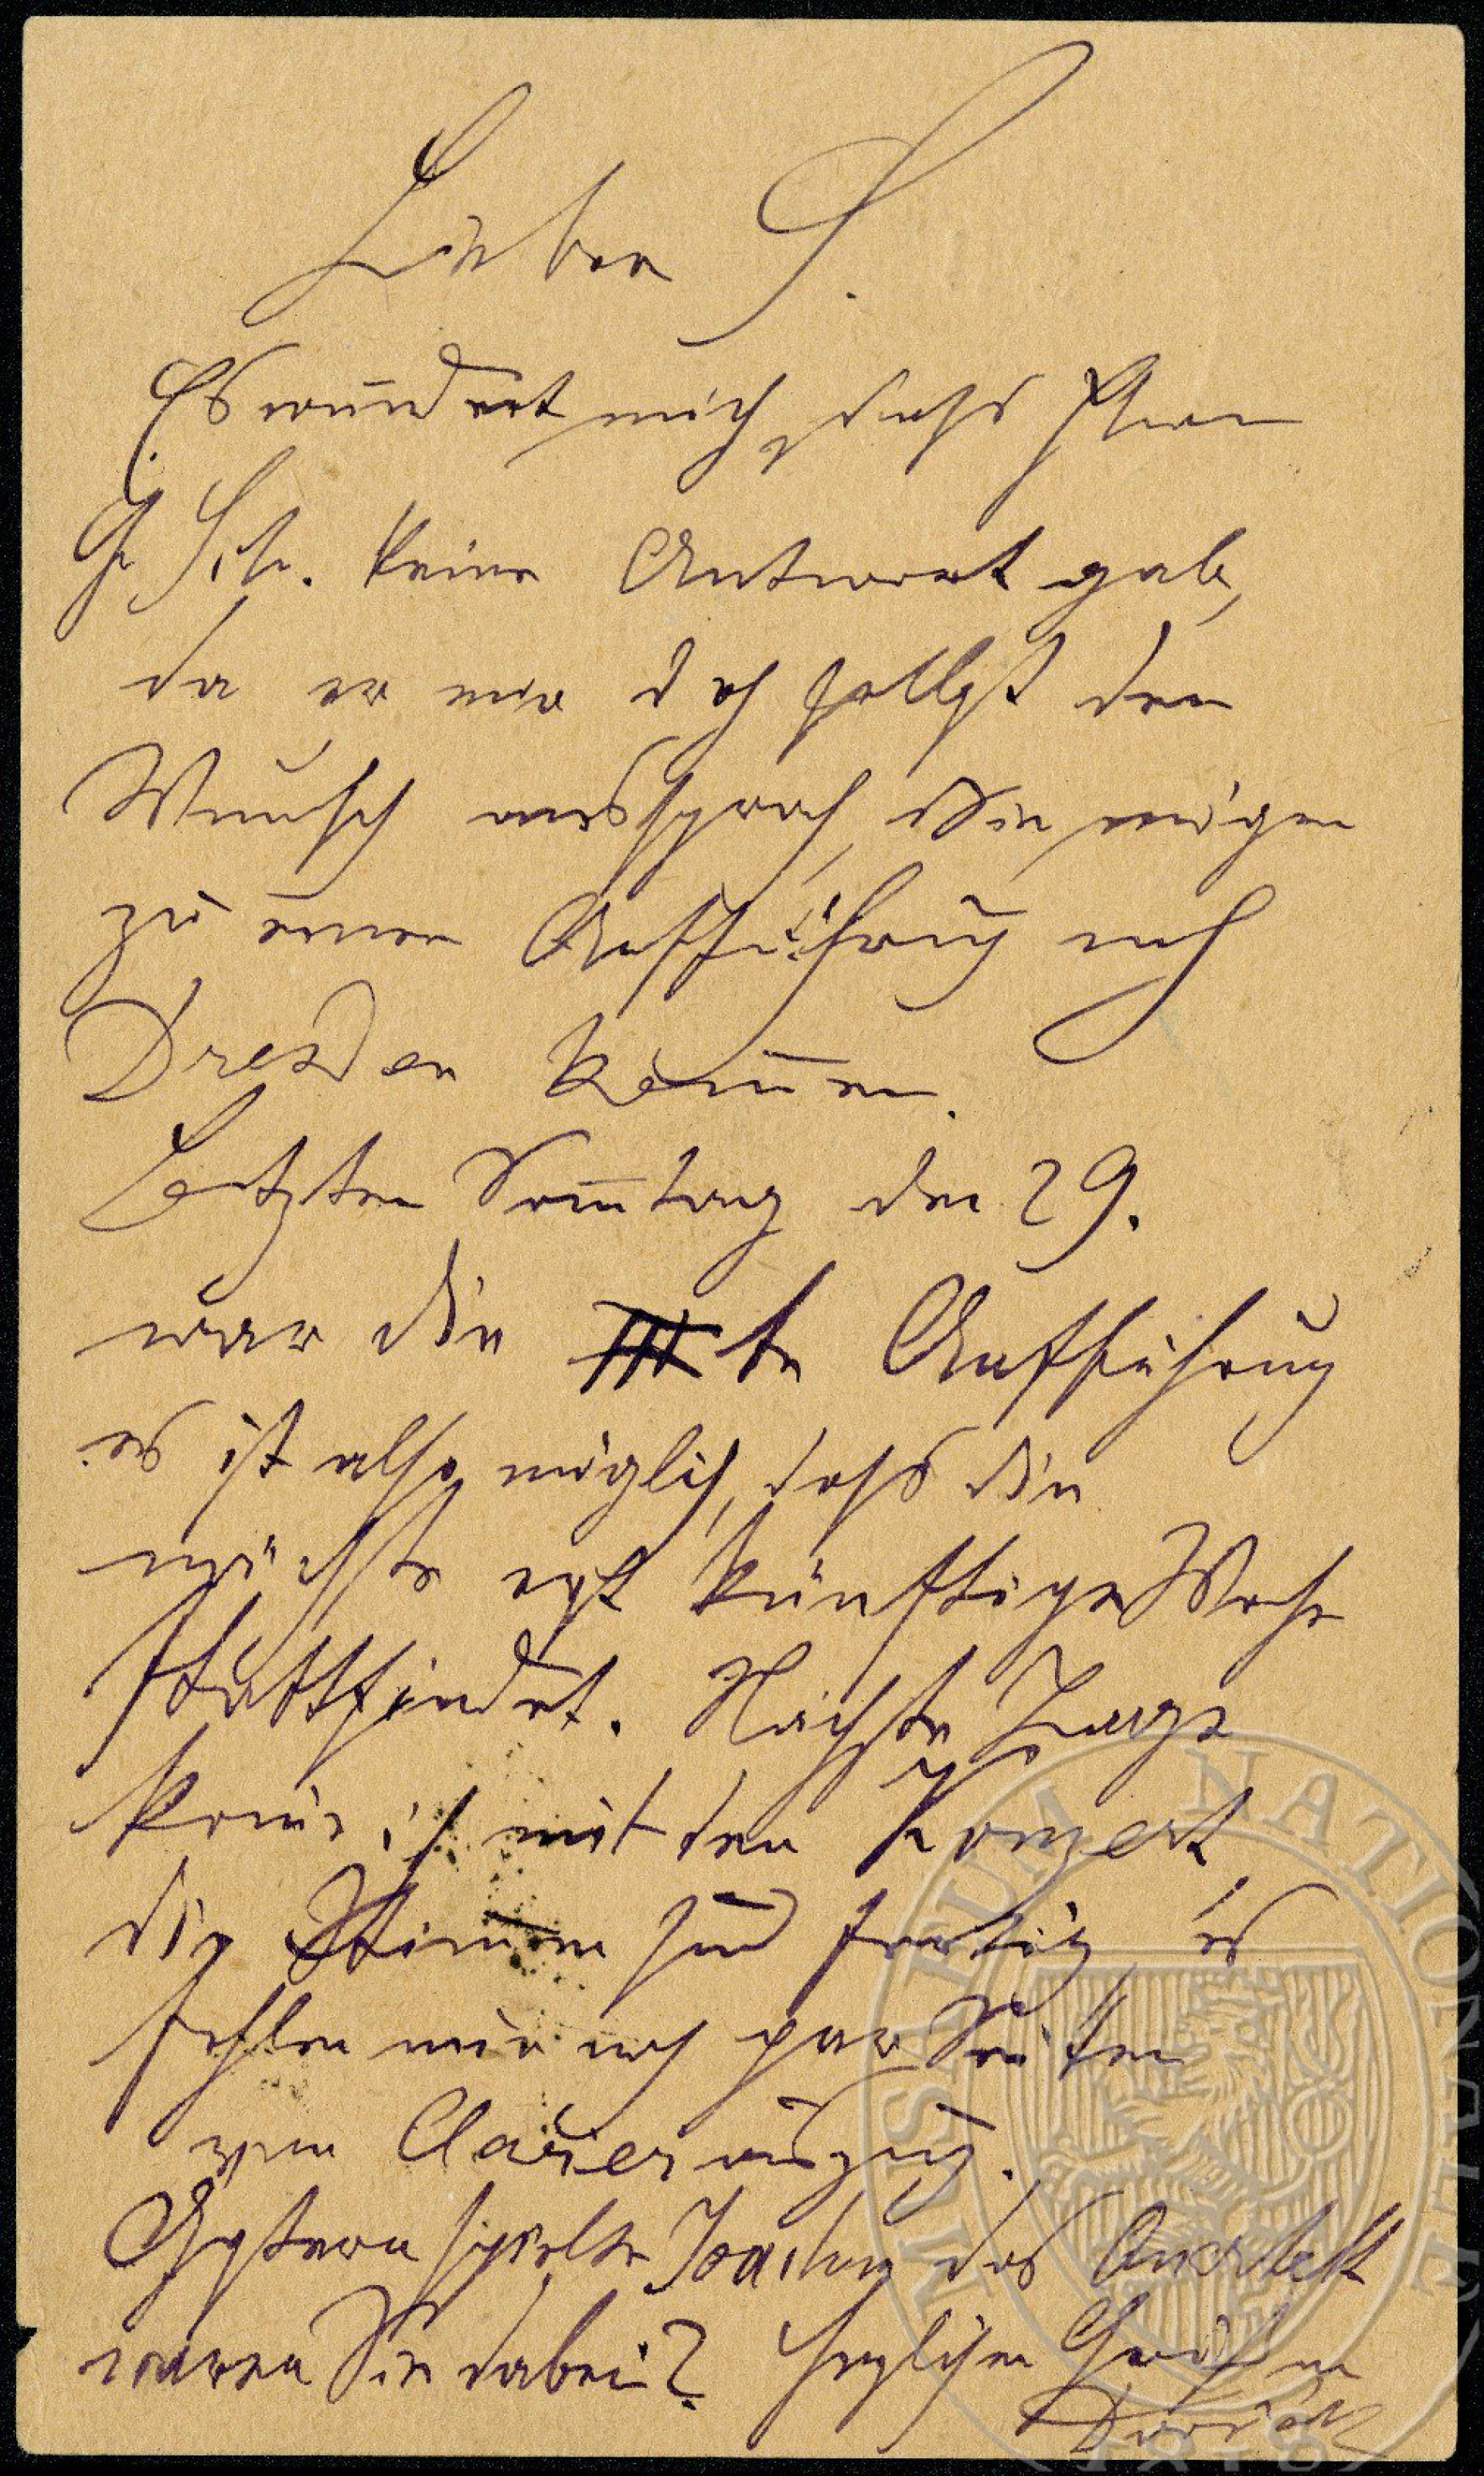 Lieber S.
Es wundert mich, dass Ihnen
H Sch. keine Antwort gab,
da er mir doch selbst den
Wunsch aussprach, Sie mögen
zu einer Aufführung nach
Dresden kom̅en.
Letzten Son̅tag den 29.
war die III te Aufführung
es ist also möglich, dass die
nächste erst künftige Woche
stattfindet. Nächste Tage
kom̅e ich mit den Konzert
die Stim̅en sind fertig, es
fehlen mir noch paar Seiten
vom Clavierauszug.
Gestern spielte Joachim das Quartett
waren Sie dabei? Herzlichen Grüssen
Dvořák
MUSAEUM NATIONALE
1818